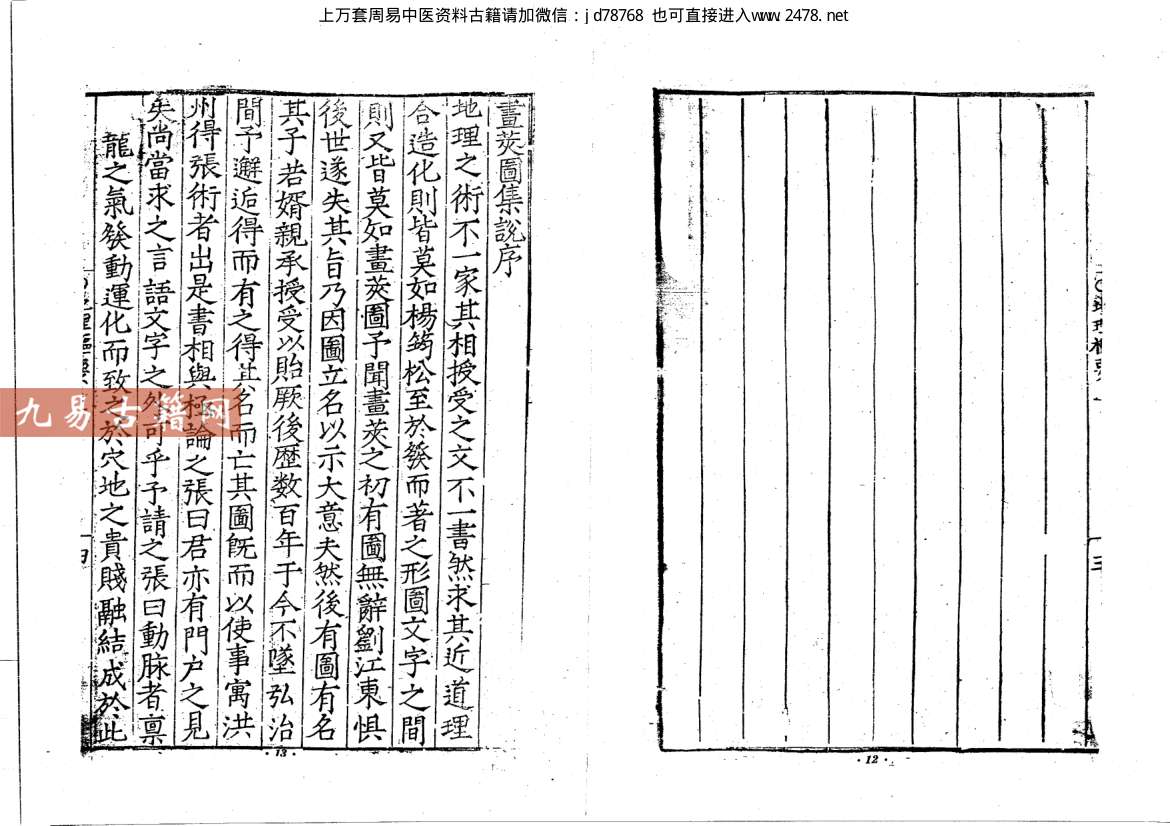 上万套周易中医资料古籍请加微信：jd78768 也可直接进入www.2478.net
畫莢圖集說序
地理之術不一家其相授受之文不一書然求其近道理
合造化則皆莫如楊筠松至於發而著之形圖文字之間
則又皆莫如畫莢圖予聞畫莢之初有圖無辭劉江東懼
後世遂失其旨乃因圖立名以示大意夫然後有圖有名
其子若婿親承授受以貽厥後歷数百年于今不墜弘治
間予邂逅得而有之得其名而亡其圖旣而以使事寓洪
州得張術者出是書相與極論之張曰君亦有門户之見
失尚當求之言語文字之外可乎予請之張曰動脉者禀
龍之氣發動運化而致之於穴地之貴賤融結成於此
九易古籍网
·13·
·12·